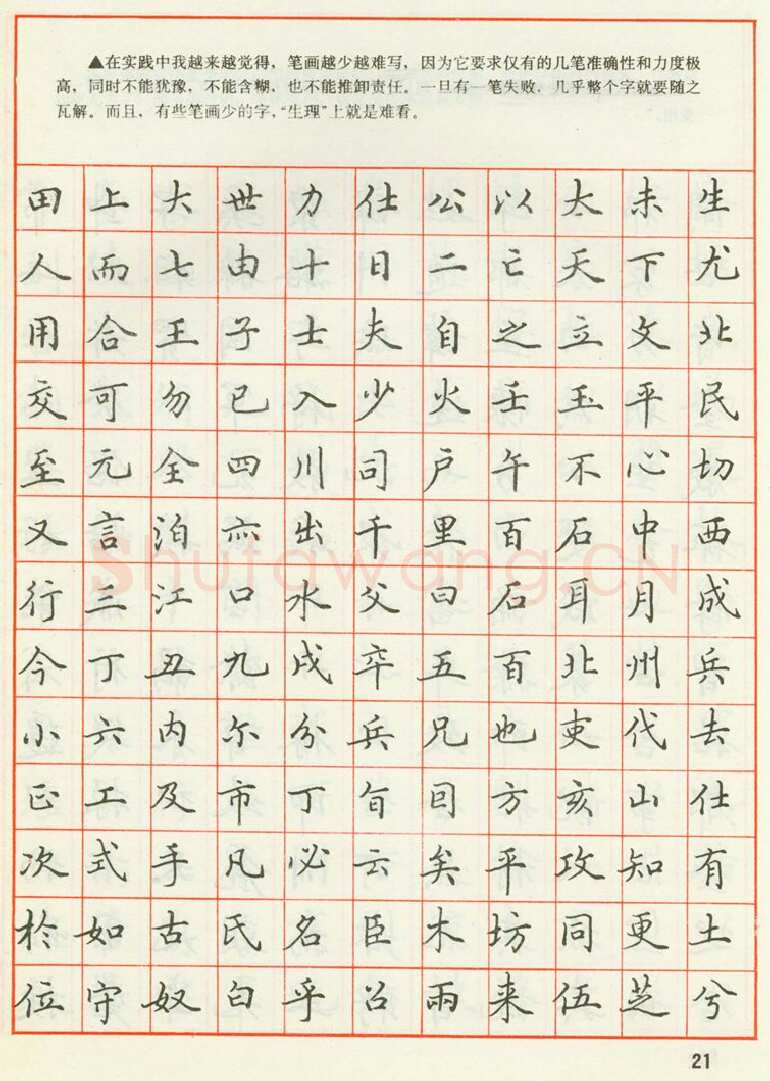 ▲在实践中我越来越觉得，笔画越少越难写，因为它要求仅有的几笔准确性和力度极
高，同时不能犹豫，不能含糊，也不能推卸责任。一旦有一笔失败，几乎整个字就要随之
瓦解。而且，有些笔画少的字，“生理”上就是难看。
田上大世力仕公以太未生
人而七由十日二亡天下尤
用合王子士夫自之立文北
交可勿已入少火壬玉平民
至元全四川司户午不心切
又言泊亦出千里百石中西
行三江口水父曰石耳月成
今丁丑九戌卒五百北州兵
小六内尔分兵兄也吏代去
正工及市丁旬目方亥山仕
次式手凡必云矣平攻知有
於如古氏名臣木坊同更土
位守奴白乎召雨来伍芝兮
Shufawang.CN
21